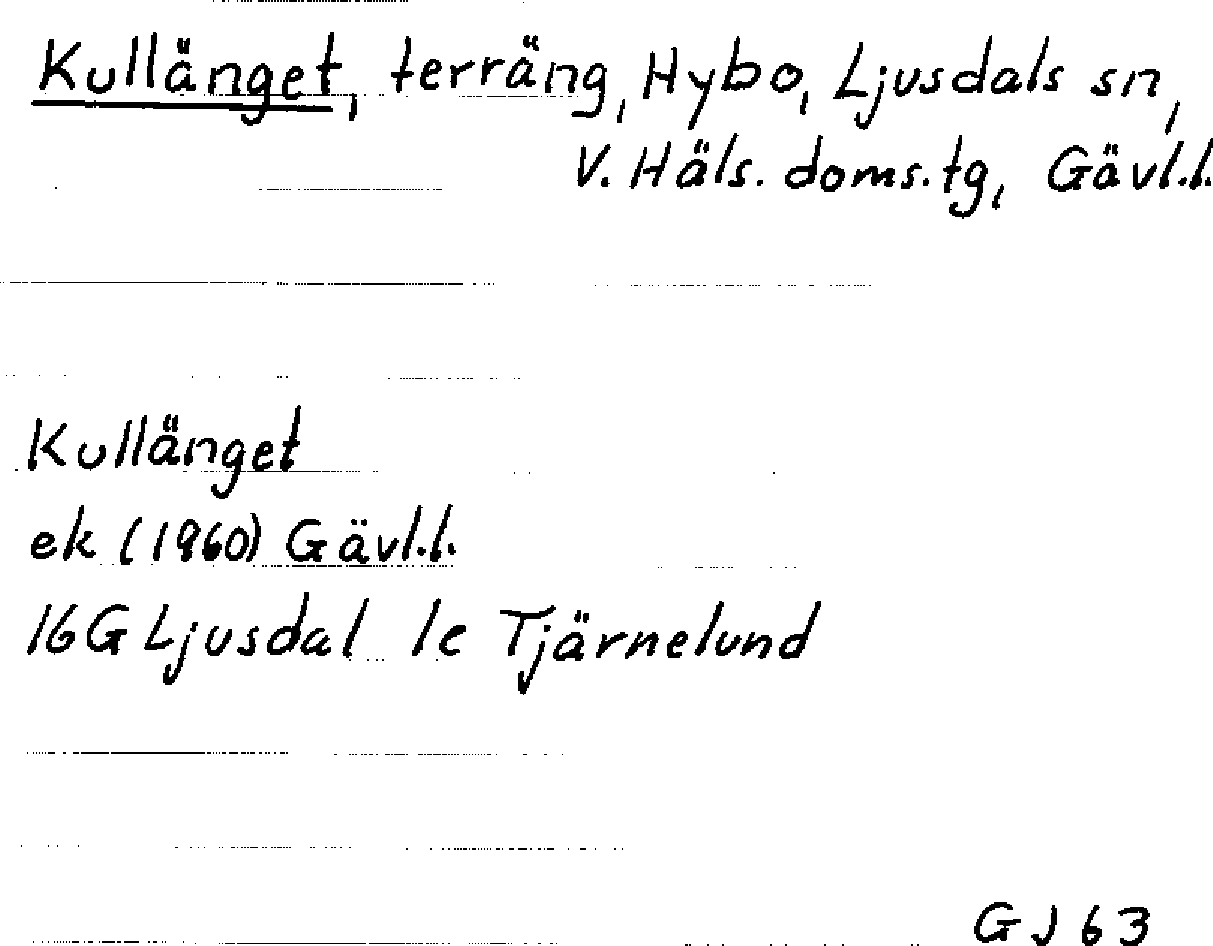 Kullänget, terräng, Hybo, Ljusdals sn,
V. Häls. doms.tg, Gävl.l.
Kullänget
ek (1960) Gävl.l.
16G Ljusdal 1c Tjärnelund
GJ 63